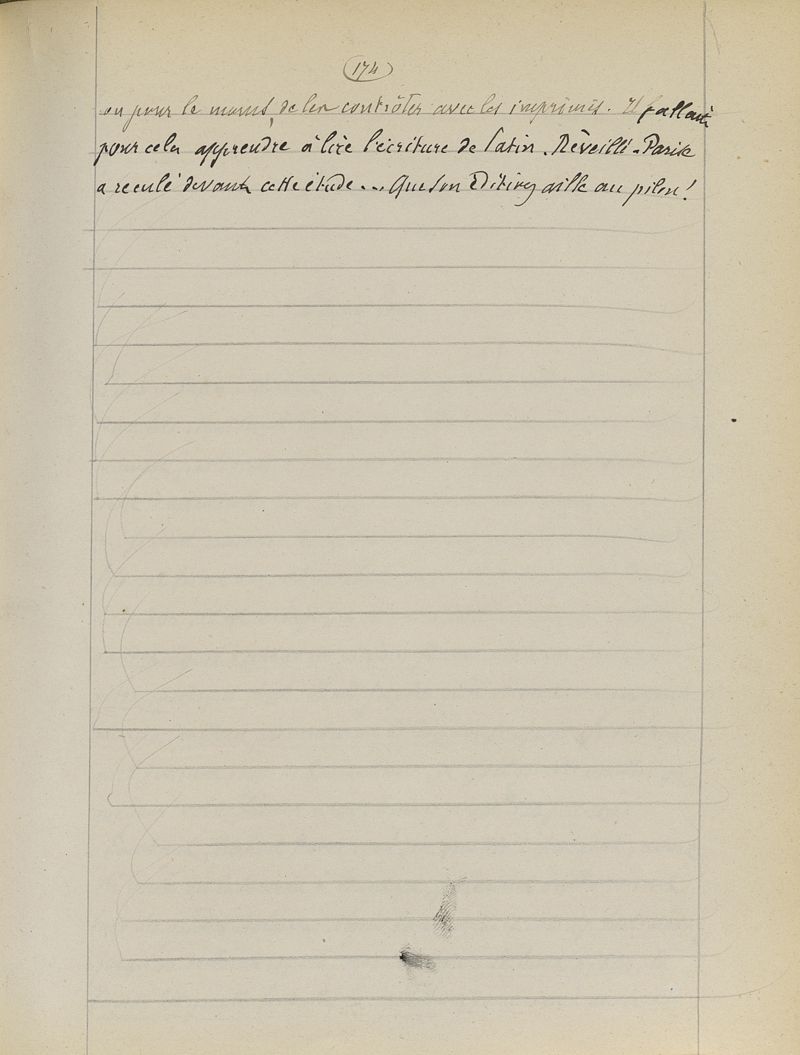 174
ou pour le moins, de les contrôler avec les imprimés. Il fallait
pour cela apprendre à lire l'écriture de Patin. Réveillé-Parise
a reculé devant cette étude... Que son Edition aille au pilon!